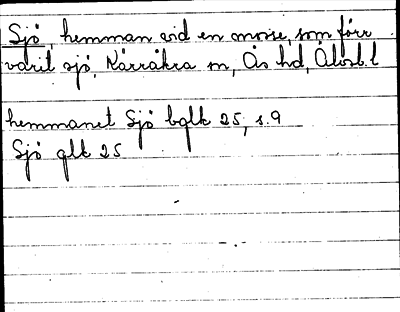 Sjö, hemman vid en mosse, som förr
varit sjö, Kärråkra sn, Ås hd, Älvsb.l
hemmanet Sjö bglk 25, s.9
Sjö glk 25